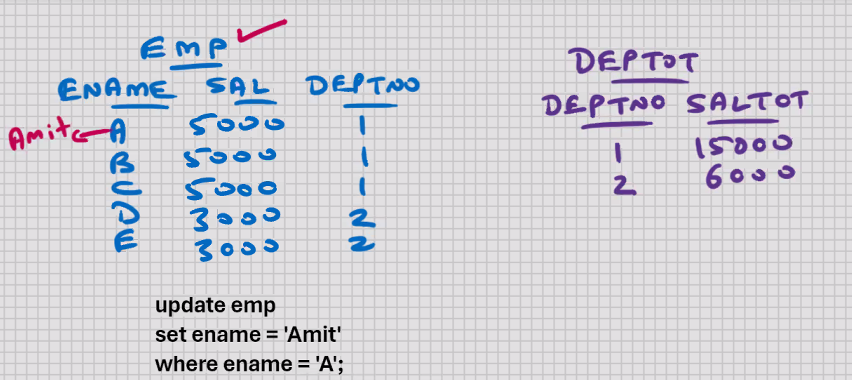 EMP
ENAME SAL DEPTNO
Amit A 5000 1
B 5000 1
C 5000 1
D 3000 2
E 3000 2
DEPTOT
DEPTNO SALTOT
1 15000
2 6000
update emp
set ename = 'Amit'
where ename = 'A';